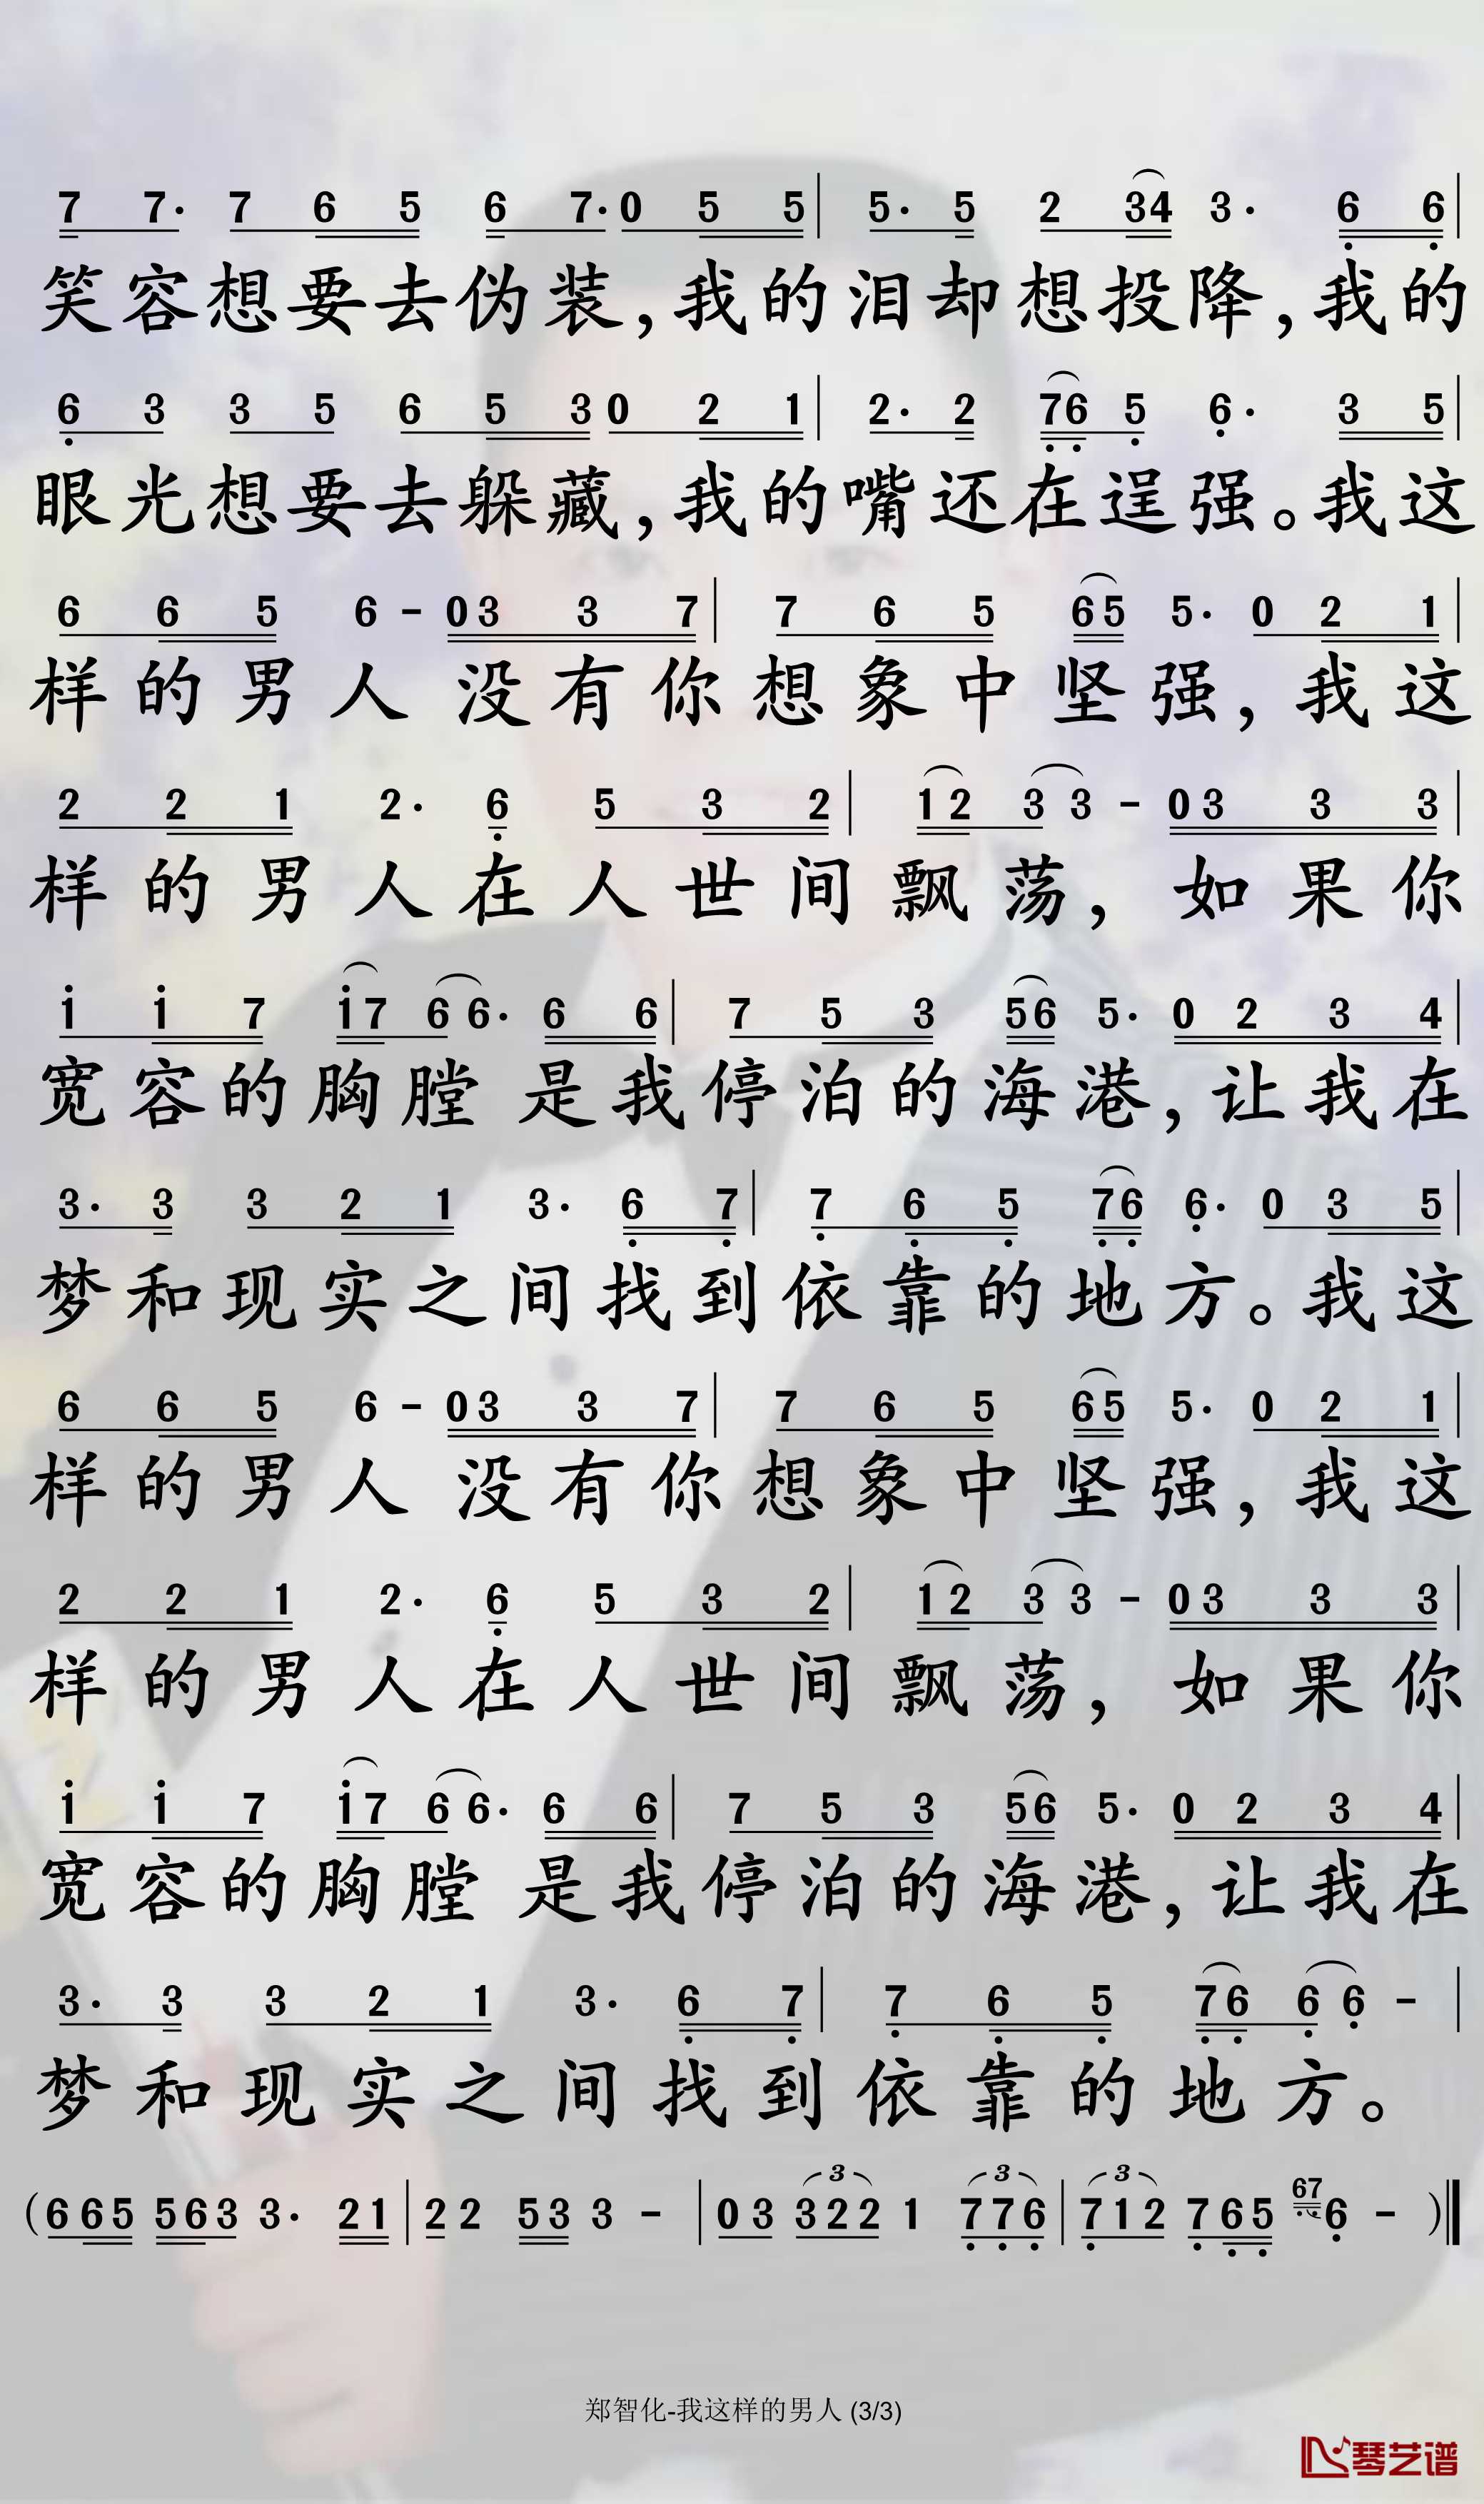 7 7· 7 6 5 6 7· 0 5 5 | 5· 5 2 34 3· 6 6 |
笑容想要去伪装,我的泪却想投降,我的
6 3 3 5 6 5 3 0 2 1 | 2· 2 76 5 6· 3 5 |
眼光想要去躲藏,我的嘴还在逞强。我这
6 6 5 6 - 0 3 3 7 | 7 6 5 65 5· 0 2 1 |
样的男人没有你想象中坚强,我这
2 2 1 2· 6 5 3 2 | 12 3 3 - 0 3 3 3 |
样的男人在人世间飘荡,如果你
1 1 7 17 6 6· 6 6 | 7 5 3 56 5· 0 2 3 4 |
宽容的胸膛是我停泊的海港,让我在
3· 3 3 2 1 3· 6 7 | 7 6 5 76 6· 0 3 5 |
梦和现实之间找到依靠的地方。我这
6 6 5 6 - 0 3 3 7 | 7 6 5 65 5· 0 2 1 |
样的男人没有你想象中坚强,我这
2 2 1 2· 6 5 3 2 | 12 3 3 - 0 3 3 3 |
样的男人在人世间飘荡,如果你
1 1 7 17 6 6· 6 6 | 7 5 3 56 5· 0 2 3 4 |
宽容的胸膛是我停泊的海港,让我在
3· 3 3 2 1 3· 6 7 | 7 6 5 76 6 6 - |
梦和现实之间找到依靠的地方。
(6 65 563 3· 21 | 2 2 53 3 - | 03 3 322 1 3 776 | 3 712 765 67 6 - )
郑智化-我这样的男人 (3/3)
琴艺谱